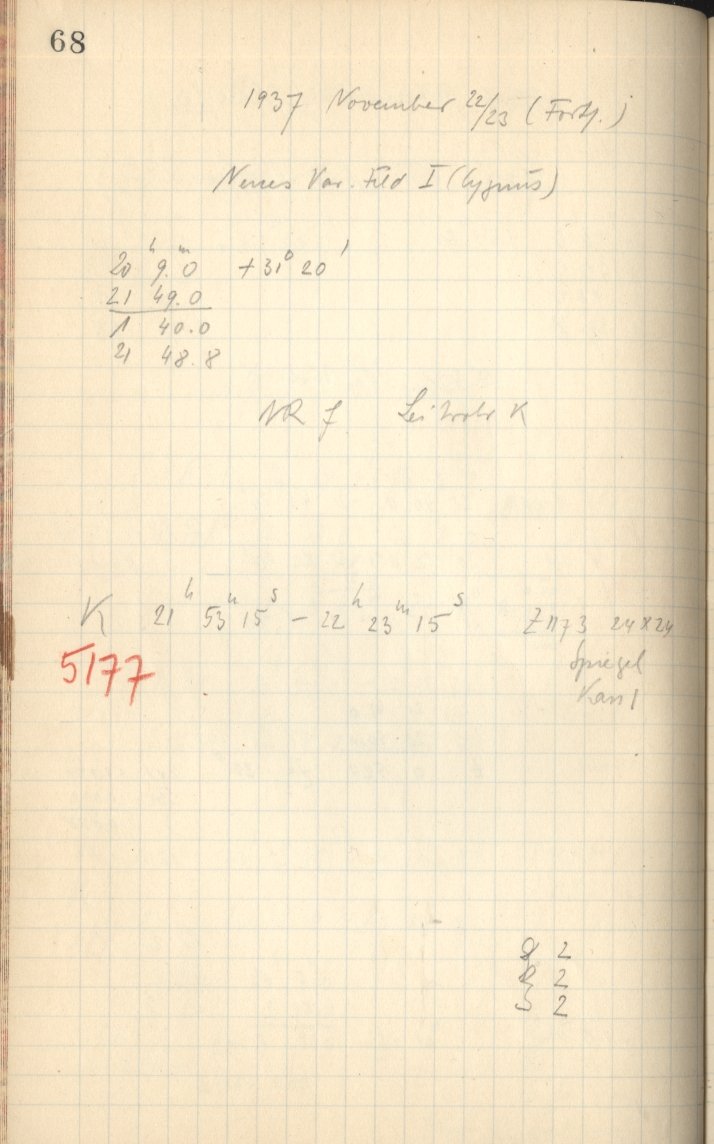 68
1937 November 22/23 (Forts.)
Neues Var. Feld I (Cygnus)
20ʰ 9.ᵐ0 +31° 20'
21 49.0
1 40.0
21 48.8
NR f Leitrohr K
K 21ʰ 53ᵐ 15ˢ – 22ʰ 23ᵐ 15ˢ Z 1173 24x24
5177
Spiegel
Kass 1
2
2
S 2